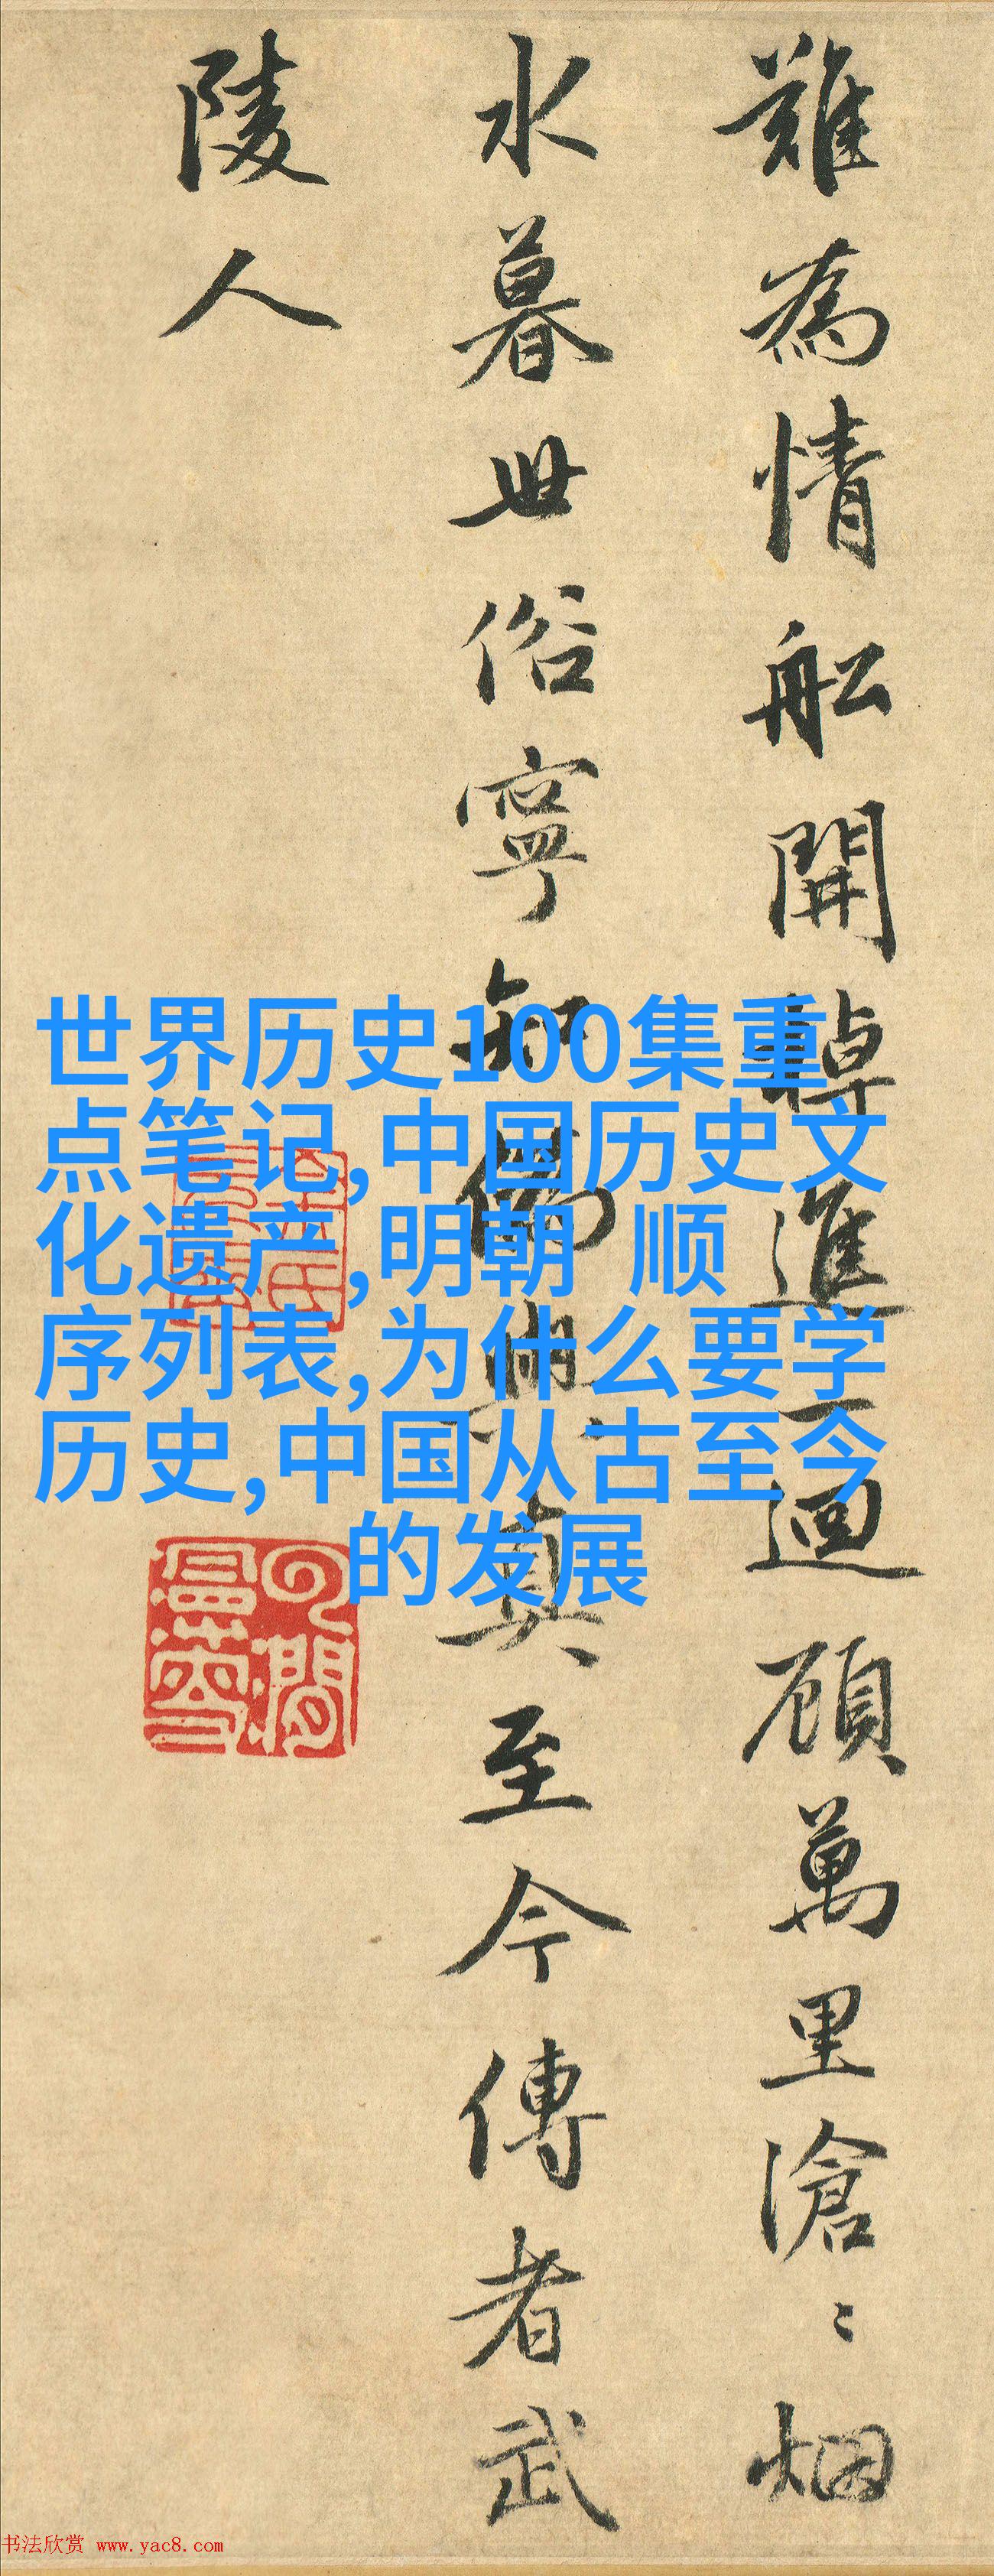 難為情舩開棹進一迴頋萬里滄〻烟
水暮世俗寧知偽與真至今傳者武
陵人
世界历史100集重
点笔记,中国历史文
化遗产,明朝 顺
序列表,为什么要学
历史,中国从古至今
的发展
书法欣赏 www.yac8.com